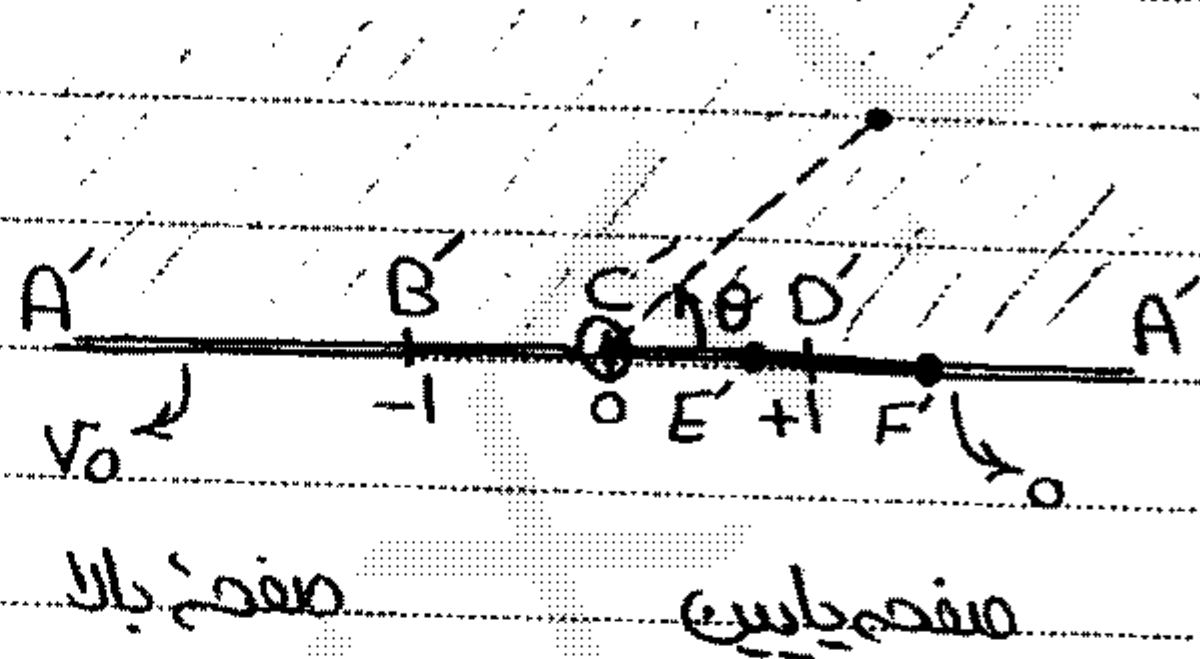 A′ B′ C′ θ D′ A′
-1 0 E′ +1 F′
V₀ 0
صفحهٔ بالا صفحه پایین